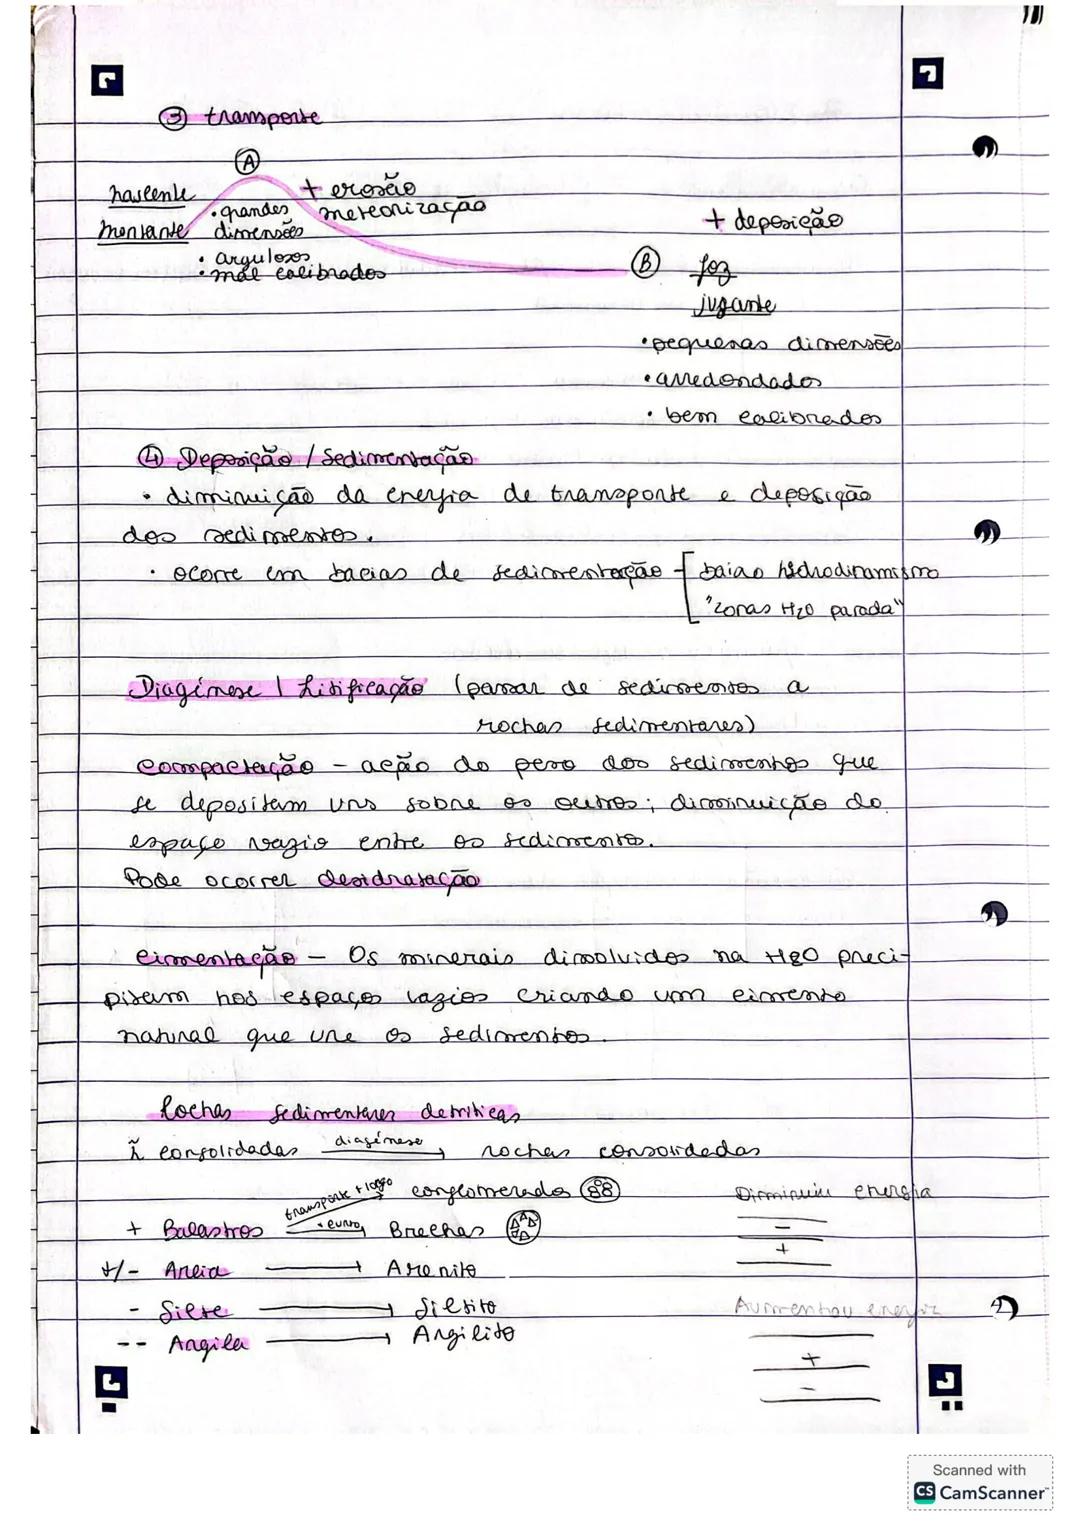 ③ transporte
Ⓐ
nascente
+ erosão
montante
• grandes
meteorização
dimensões
+ deposição
• angulosos
• mal calibrados
Ⓑ foz
jusante
• pequenas dimensões
• arredondados
• bem calibrados
④ Deposição / Sedimentação
• diminuição da energia de transporte e deposição
dos sedimentos.
• ocorre em bacias de sedimentação
baixo hidrodinamismo
"zonas H2O parada"
Diagénese | Litificação (passar de sedimentos a
rochas sedimentares)
compactação - ação do peso dos sedimentos que
se depositam uns sobre os outros; diminuição do
espaço vazio entre os sedimentos.
Pode ocorrer desidratação
cimentação – Os minerais dissolvidos na H2O preci-
pitam nos espaços vazios criando um cimento
natural que une os sedimentos.
Rochas sedimentares detríticas
ñ consolidadas diagénese → rochas consolidadas
transporte + logo conglomerados
Diminuiu energia
+ Balastros + curto Brechas
-
+
+/- Areia → Arenito
- Silte → Siltito
Aumentou energia
-- Argila → Argilito
+
-
Scanned with
CS CamScanner